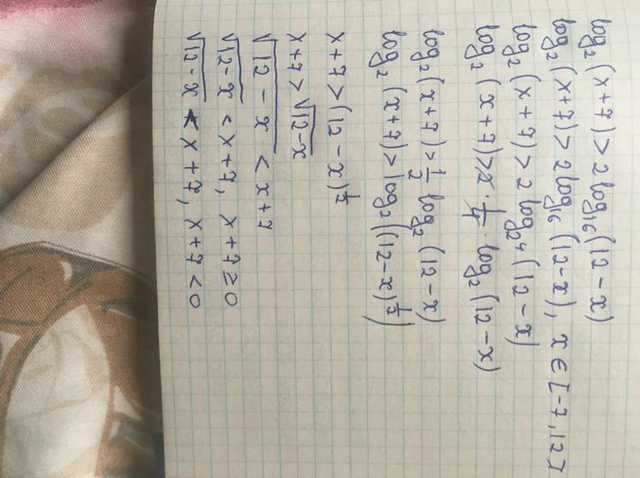 log₂(x+7)>2log₁₆(12-x)
log₂(x+7)>2log₁₆(12-x), x∈[-7,12>
log₂(x+7)>2log₂4(12-x)
log₂(x+7)>2·1/4·log₂(12-x)
log₂(x+7)>1/2 log₂(12-x)
log₂(x+7)>log₂((12-x)^1/2)
x+7>(12-x)^1/2
x+7>√12-x
√12-x<x+7
√12-x<x+7, x+7≥0
√12-x<x+7, x+7<0